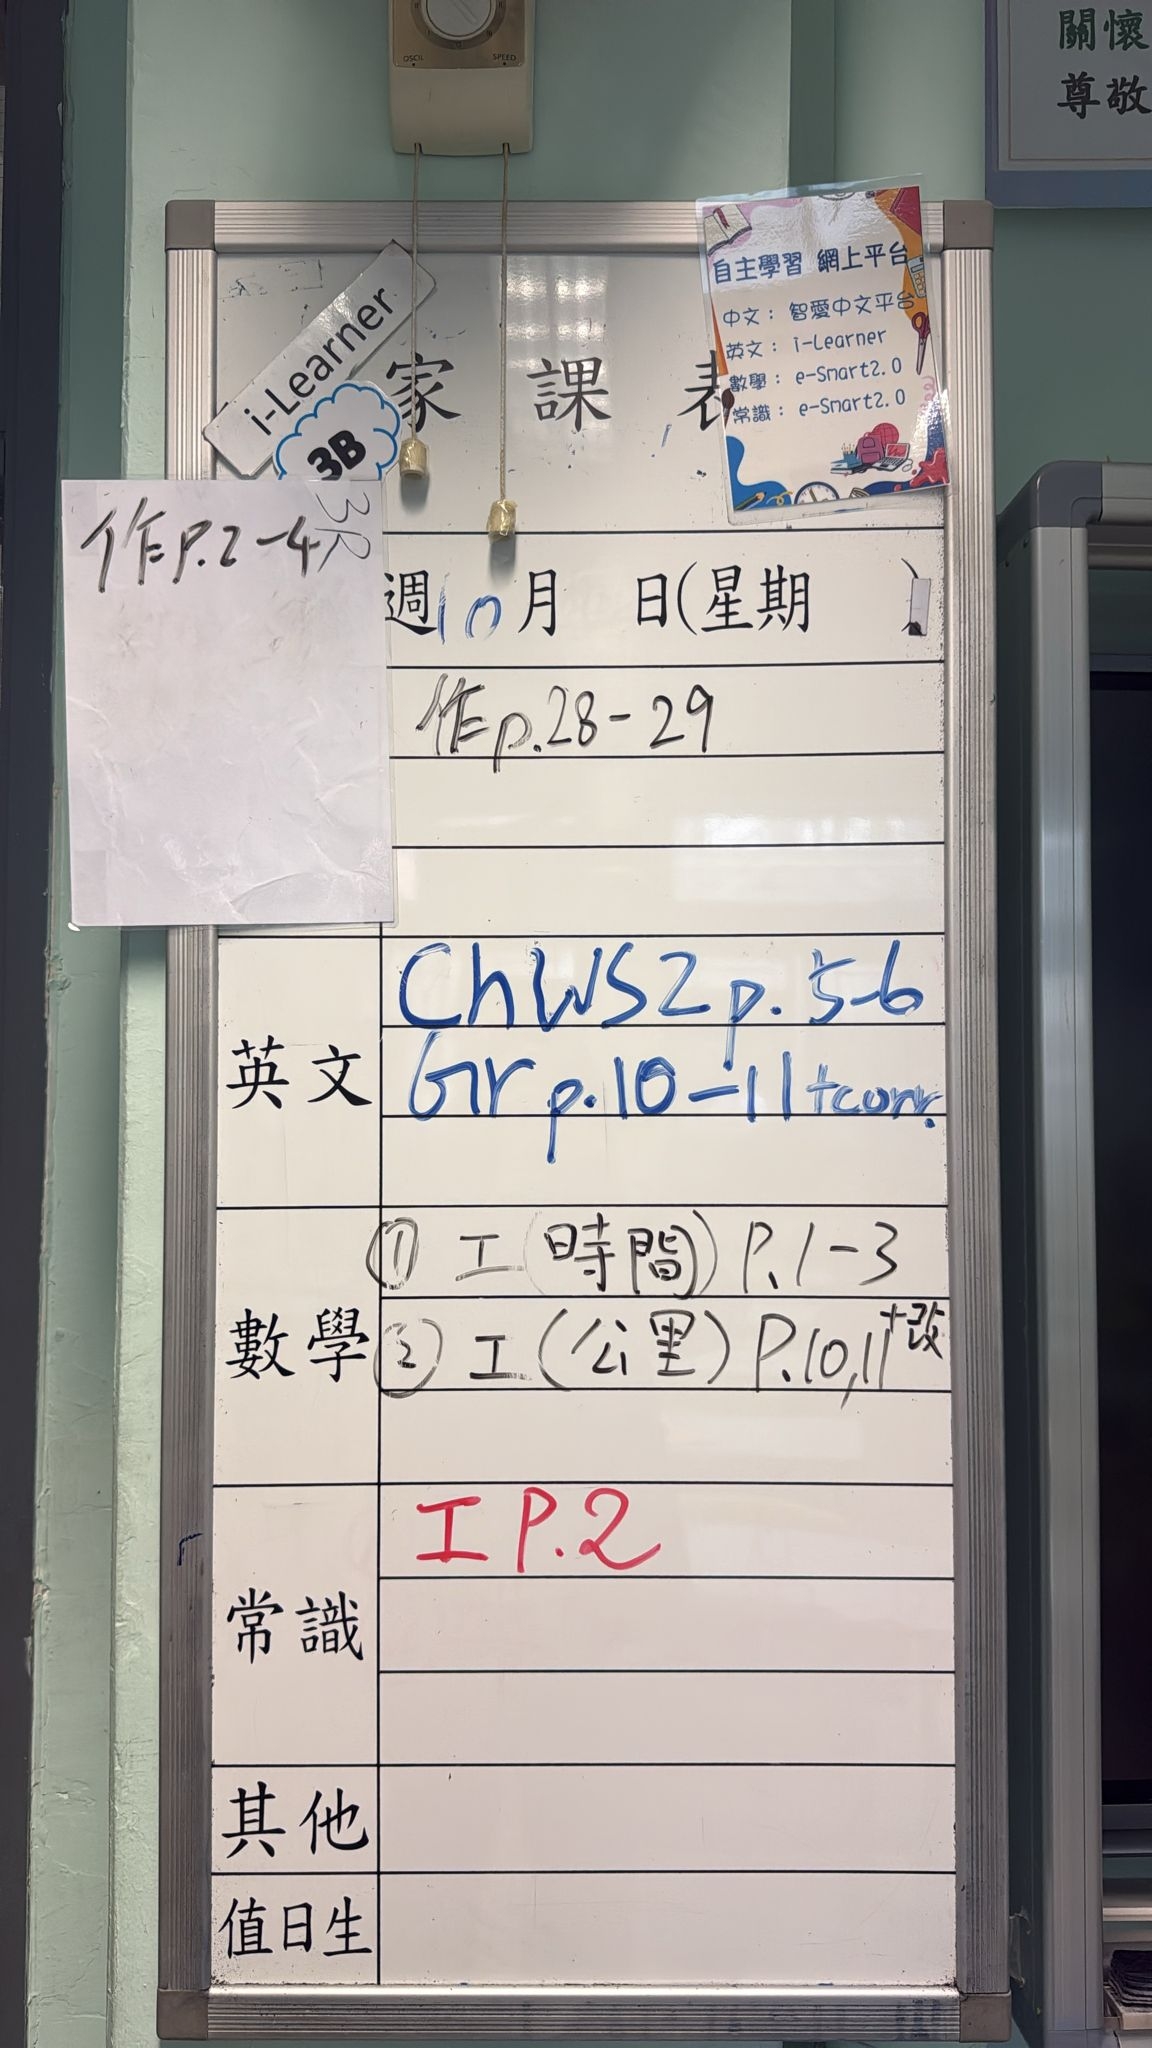 OSCIL SPEED
關懷
尊敬
自主學習 網上平台
中文: 智愛中文平台
英文: i-Learner
數學: e-Smart2.0
常識: e-Smart2.0
i-Learner
3B
家課表
3R
作P.2-4
週10月 日(星期 )
作p.28-29
英文
ChWS2 p.5-6
Gr p.10-11+corr.
數學
① 工(時間) P.1-3
② 工(公里) P.10,11+改
常識
工 P.2
其他
值日生